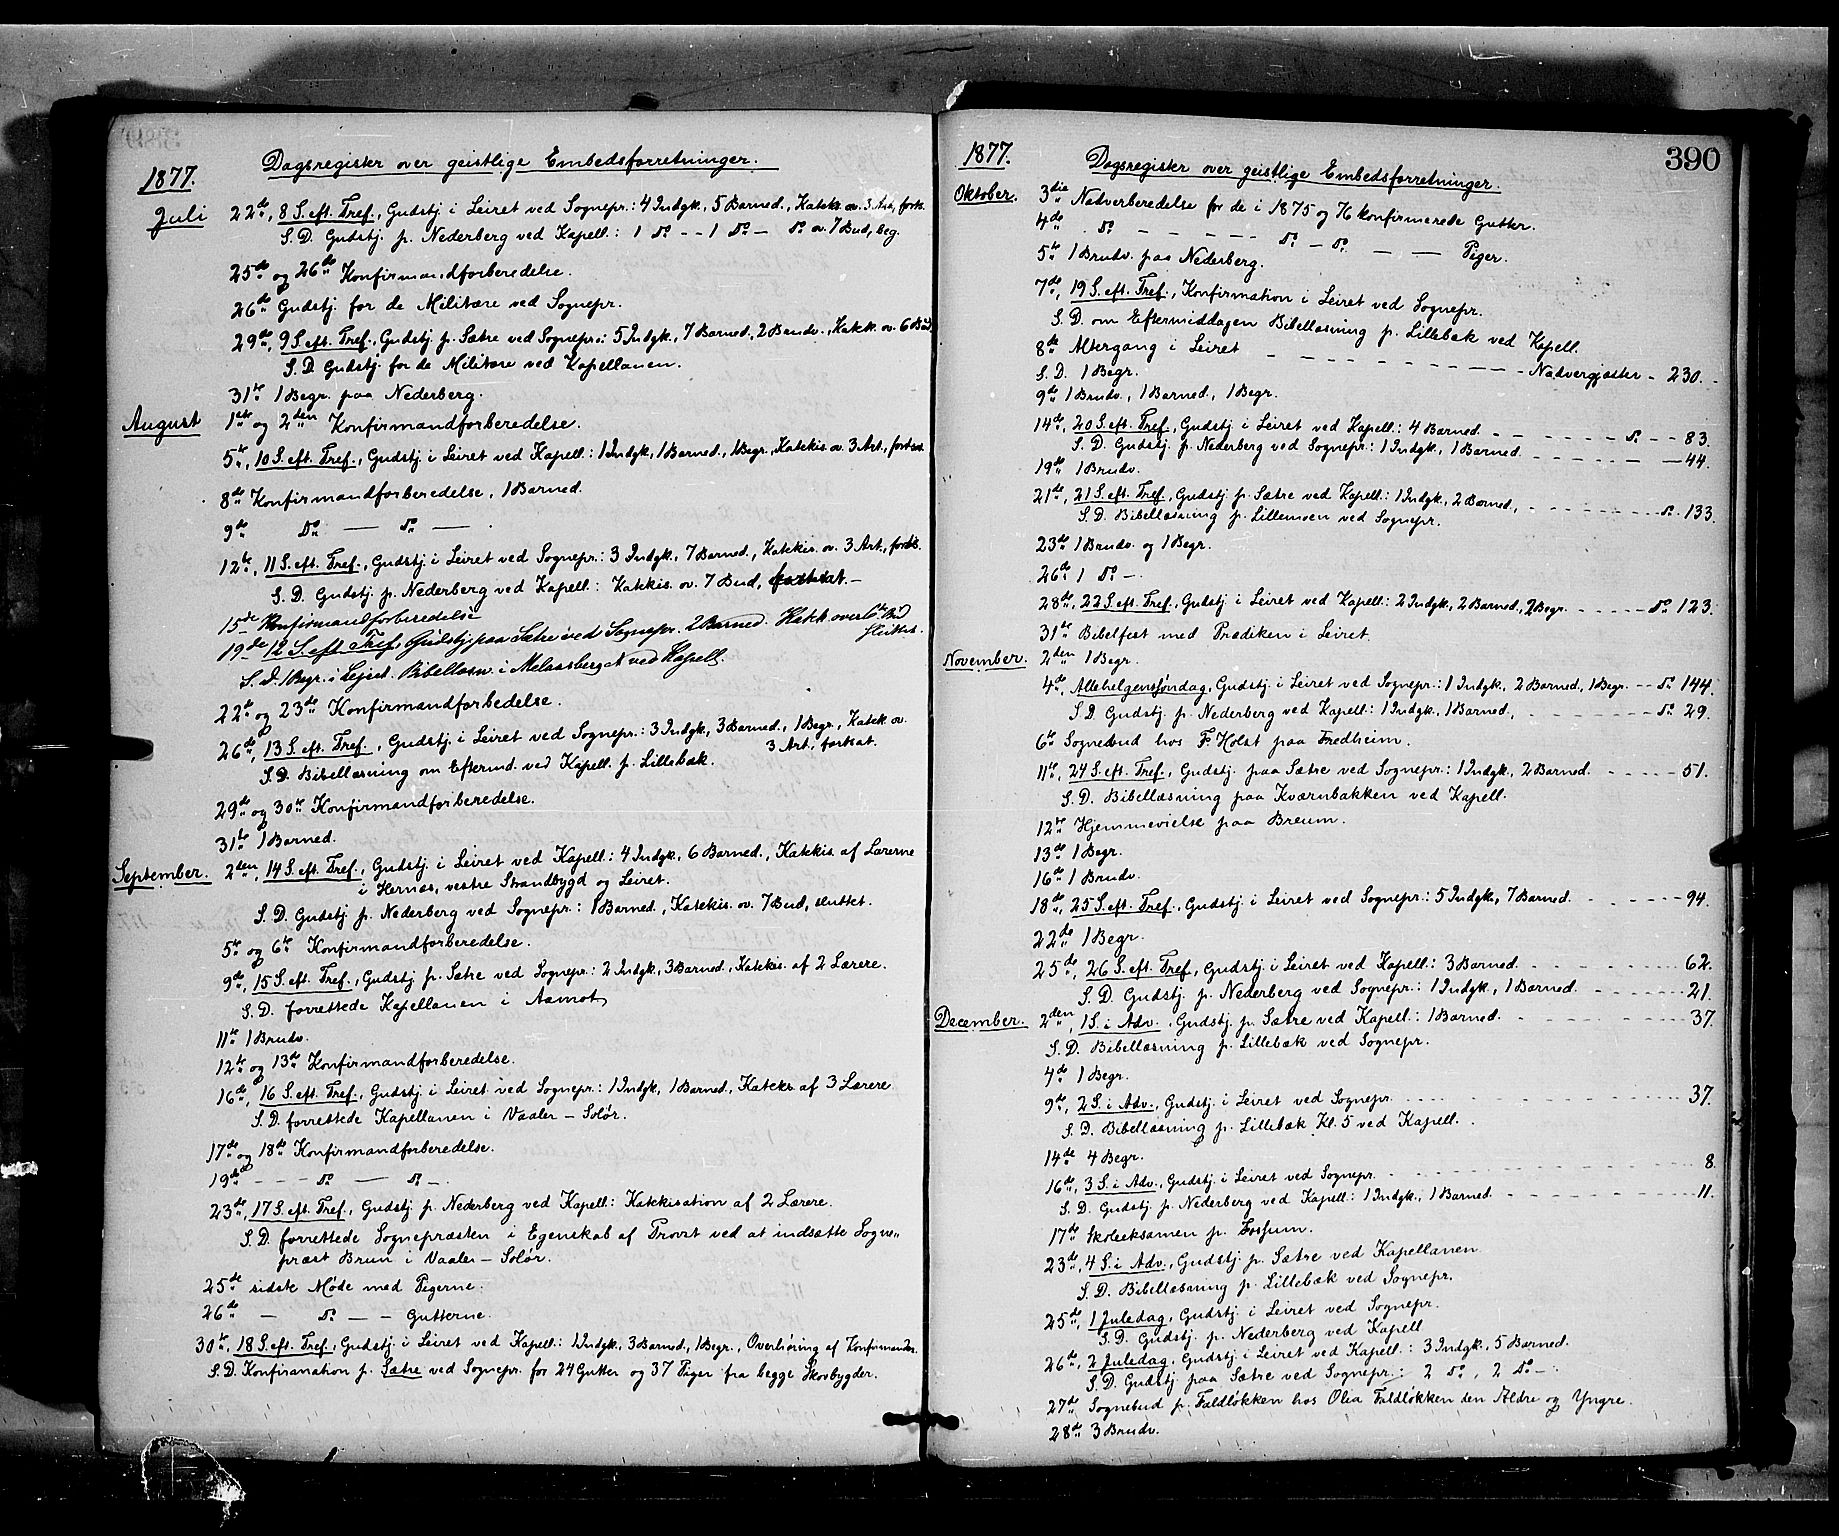 1877. Dagsregister over geistlige Embedsforretninger.
Juli 22de, 8 S. eft. Tref., Gudstj. i Leiret ved Sognepr.: 4 Indgk., 5 Barned., Katek. ov. 3 Art., forts.
S. D. Gudstj. p. Nederberg ved Kapell.: 1 Do - - 1 Do - Do ov. 7 Bud, beg.
25de og 26de Konfirmandforberedelse.
26de Gudstj. for de Militære ved Sognepr.
29de, 9 S. eft. Tref., Gudstj. p. Sætre ved Sognepr.: 5 Indgk., 7 Barned., 2 Brudv., Katek. ov. 6 Bud
S. D. Gudstj. for de Militære ved Kapellanen.
31te 1 Begr. paa Nederberg.
August 1ste og 2den Konfirmandforberedelse.
5te, 10 S. eft. Tref., Gudstj. i Leiret ved Kapell.: 1 Indgk., 1 Barned., 1 Begr., Katekis. ov. 3 Art., fortsat.
8de Konfirmandforberedelse, 1 Barned.
9de Do — Do —
12te, 11 S. eft. Tref., Gudstj. i Leiret ved Sognepr.: 3 Indgk., 7 Barned., Katekis. ov. 3 Art., forts.
S. D. Gudstj. p. Nederberg ved Kapell.: Katekis. ov. 7 Bud, fortsat. —
15de Konfirmandforberedelse
19de 12 S. eft. Tref. Gudstj. paa Sætre ved Sognepr. 2 Barned. Katek. over 6te Bud
sluttet.
S. D. 1 Begr. i Lejret. Bibellæsn. i Melaasberg N ved Kapell.
22de og 23de Konfirmandforbedelse.
26de, 13 S. eft. Tref., Gudstj. i Leiret ved Sognepr.: 3 Indgk., 3 Barned., 1 Begr., Katek. ov.
3 Art., fortsat.
S. D. Bibellæsning om Eftermd. ved Kapell. p. Lillebæk.
29de og 30te Konfirmandforberedelse.
31te 1 Barned.
September. 2den, 14 S. eft. Tref., Gudstj. i Leiret ved Kapell.: 4 Indgk., 6 Barned., Katekis. af Lærerne
i Hernæs, vestre Strandbygd og Leiret.
S. D. Gudstj. p. Nederberg ved Sognepr.: 1 Barned., Katekis. ov. 7 Bud, sluttet.
5te og 6te Konfirmandforberedelse.
9de, 15 S. eft. Tref., Gudstj. p. Sætre ved Sognepr.: 2 Indgk., 3 Barned., Katekis. af 2 Lærere.
S. D. forrettede Kapellanen i Aamot.
11te 1 Brudv.
12te og 13de Konfirmandforberedelse.
16de, 16 S. eft. Tref., Gudstj. i Leiret ved Sognepr.: 1 Indgk, 1 Barned., Katekis. af 3 Lærere.
S. D. forrettede Kapellanen i Vaaler – Solør.
17de og 18de Konfirmandforberedelse.
19de - - - Do — Do —.
23de, 17 S. eft. Tref., Gudstj. p. Nederberg ved Kapell: Katekisation af 2 Lærere.
S. D. forrettede Sognepræsten i Egenskab af Provst ved at indsætte Sogne-
præst Brun i Vaaler – Solør.
25de sidste Møde med Pigerne.
26de — Do — — Gutterne.
30te, 18 S. eft. Tref., Gudstj. i Leiret ved Kapell: 1 Indgk., 3 Barned., 1 Begr., Overhøring af Konfirmander.
S. D. Konfirmation p. Sætre ved Sognepr. for 24 Gutter og 37 Piger fra begge Skovbygder.
390
1877. Dagsregister over geistlige Embedsforretninger.
Oktober. 3die Nadverberedelse for de i 1875 og 76 konfirmerede Gutter.
4de Do - - - - - Do - Do — — Piger.
5te 1 Brudv. paa Nederberg.
7de, 19 S. eft. Tref., Konfirmation i Leiret ved Sognepr.
S. D. om Eftermiddagen Bibellæsning p. Lillebæk ved Kapell.
8de Altergang i Leiret - - - - - - - - - Nadvergjæster - 230.
S. D. 1 Begr.
9de 1 Brudv., 1 Barned., 1 Begr.
14de, 20 S. eft. Tref., Gudstj. i Leiret ved Kapell: 4 Barned. - - - - - - Do - - 83.
S. D. Gudstj. p. Nederberg ved Sognepr.: 1 Indgk., 1 Barned. - - - - - — 44.
19de 1 Brudv.
21de, 21 S. eft. Tref., Gudstj. p. Sætre ved Kapell.: 1 Indgk., 2 Barned., - - - - - Do 133.
S. D. Bibellæsning p. Lillemoen ved Sognepr.
23de 1 Brudv. og 1 Begr.
26de 1 Do —.
28de, 22 S. eft. Tref., Gudstj. i Leiret ved Kapell: 2 Indgk., 2 Barned., 2 Begr. - - - - Do 123.
31te Bibelfest med Prædiken i Leiret.
November. 2den 1 Begr.
4de, Allehelgenssøndag, Gudstj. i Leiret ved Sognepr.: 1 Indgk., 2 Barned., 1 Begr. - - Do 144.
S. D. Gudstj. p. Nederberg ved Kapell: 1 Indgk., 1 Barned., - - - - - - Do 29.
6te Sognebud hos F. Holst paa Fredheim.
11te, 24 S. eft. Tref., Gudstj. paa Sætre ved Sognepr.: 1 Indgk., 2 Barned. - - - - - 51.
S. D. Bibellæsning paa Kværnbakken ved Kapell.
12te Hjemmevielse paa Breum.
13de 1 Begr.
16de 1 Brudv.
18de, 25 S. eft. Tref., Gudstj. i Leiret ved Sognepr.: 5 Indgk., 7 Barned. - - - - - - 94.
22de 1 Begr.
25de, 26 S. eft. Tref., Gudstj. i Leiret ved Kapell: 3 Barned. - - - - - - - 62.
S. D. Gudstj. p. Nederberg ved Sognepr.: 1 Indgk., 1 Barned. - - - - - 21.
December. 2den, 1 S. i Adv., Gudstj. p. Sætre ved Kapell.: 1 Barned. - - - - - - - 37.
S. D. Bibellæsning p. Lillebæk ved Sognepr.
4de 1 Begr.
9de, 2 S. i Adv., Gudstj. i Leiret ved Sognepr. - - - - - - - - - 37.
S. D. Bibellæsning p. Lillebæk Kl. 5 ved Kapell.
14de 4 Begr.
16de, 3 S. i Adv., Gudstj. i Leiret ved Sognepr. - - - - - - - - - 8.
S. D. Gudstj. p. Nederberg ved Kapell: 1 Indgk., 1 Barned. - - - - - - - 11.
17de Skoleeksamen p. Fossum.
23de, 4 S. i Adv., Gudstj. p. Sætre ved Kapellanen.
S. D. Bibellæsning p. Lillebæk ved Sognepr.
25de, 1 Juledag, Gudstj. i Leiret ved Sognepr.
S. D. Gudstj. p. Nederberg ved Kapell
26de, 2 Juledag, Gudstj. i Leiret ved Kapell.: 3 Indgk., 5 Barned.
S. D. Gudstj. paa Sætre ved Sognepr.: 2 Do, 2 Do —.
27de Sognebud p. Faldløkken hos Olea Faldløkken den Ældre og Yngre.
28de 3 Brudv.